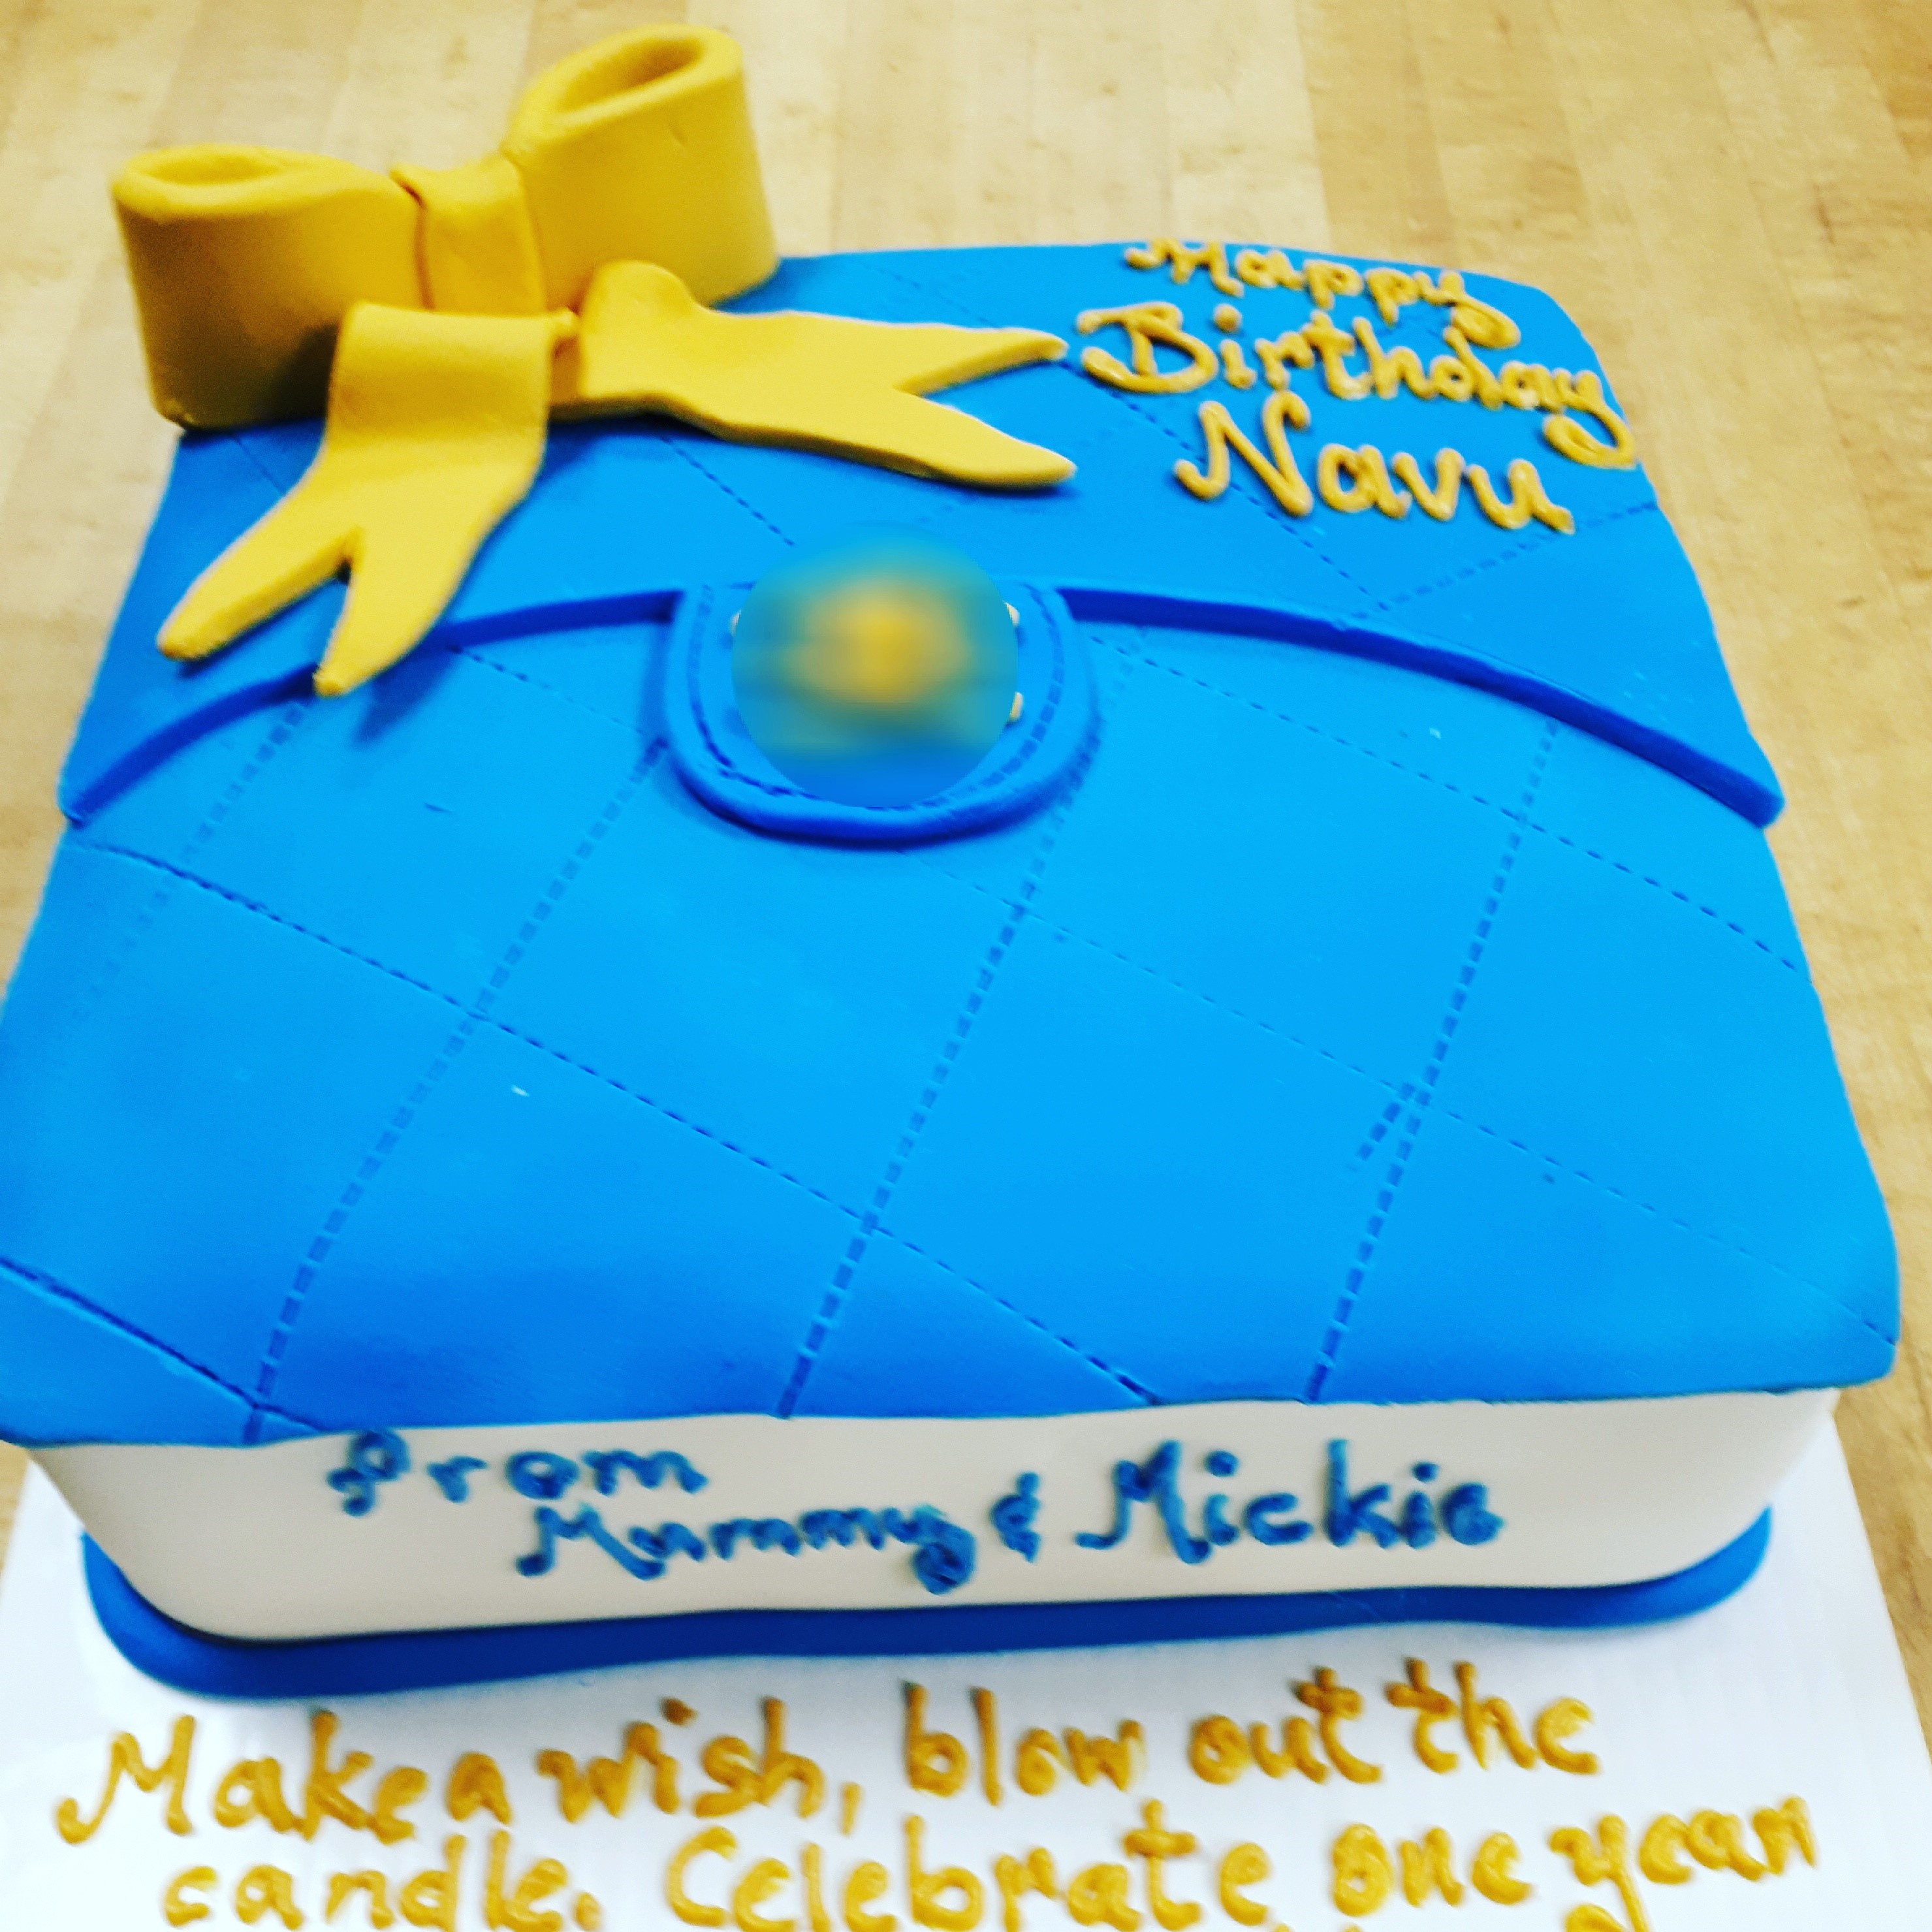 Happy
Birthday
Navu
From
Mummy & Mickie
Make a wish, blow out the
candle. Celebrate one year